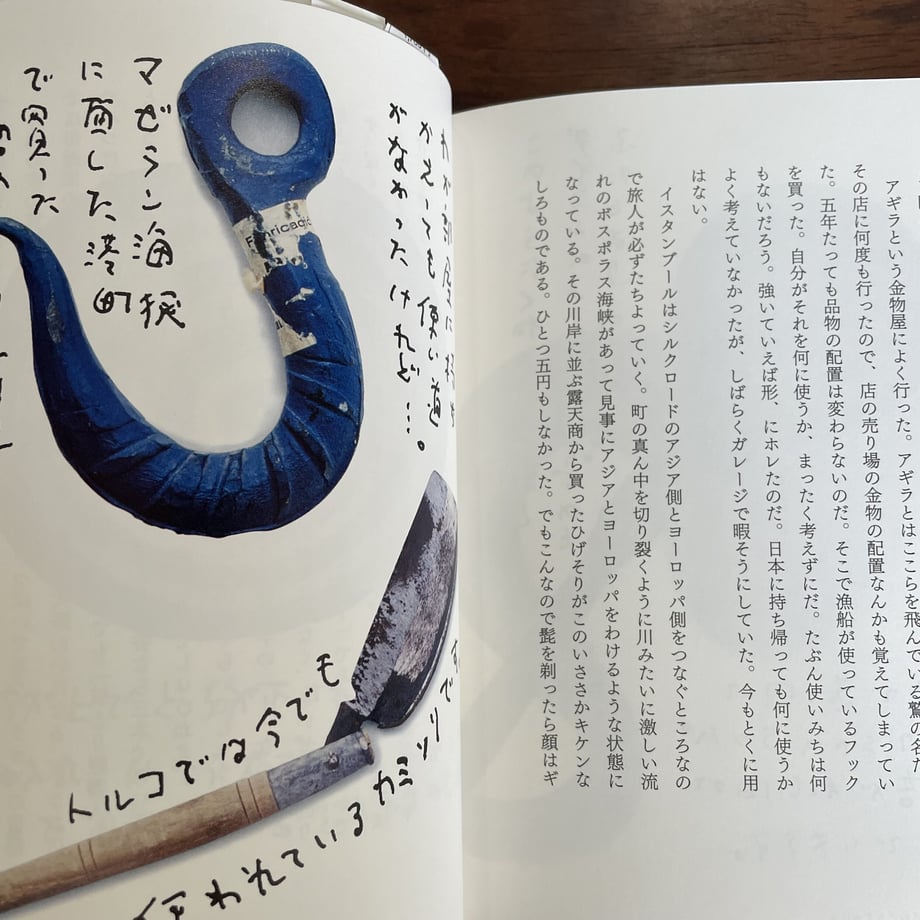 アギラという金物屋によく行った。アギラとはここらを飛んでいる鷲の名だ
その店に何度も行ったので、店の売り場の金物の配置なんかも覚えてしまってい
た。五年たっても品物の配置は変わらないのだ。そこで漁船が使っているフック
を買った。自分がそれを何に使うか、まったく考えずにだ。たぶん使いみちは何
もないだろう。強いていえば形、にホレたのだ。日本に持ち帰っても何に使うか
よく考えていなかったが、しばらくガレージで暇そうにしていた。今もとくに用
はない。
イスタンブールはシルクロードのアジア側とヨーロッパ側をつなぐところなの
で旅人が必ずたちよっていく。町の真ん中を切り裂くように川みたいに激しい流
れのボスポラス海峡があって見事にアジアとヨーロッパをわけるような状態に
なっている。その川岸に並ぶ露天商から買ったひげそりがこのいささかキケンな
しろものである。ひとつ五円もしなかった。でもこんなので髭を剃ったら顔はギ
マゼラン海峡
に面した港町
で買った
わが部屋に持
かえっても使い道
がなかったけれど…。
Fabricado
トルコでは今でも
使われているカミソリで